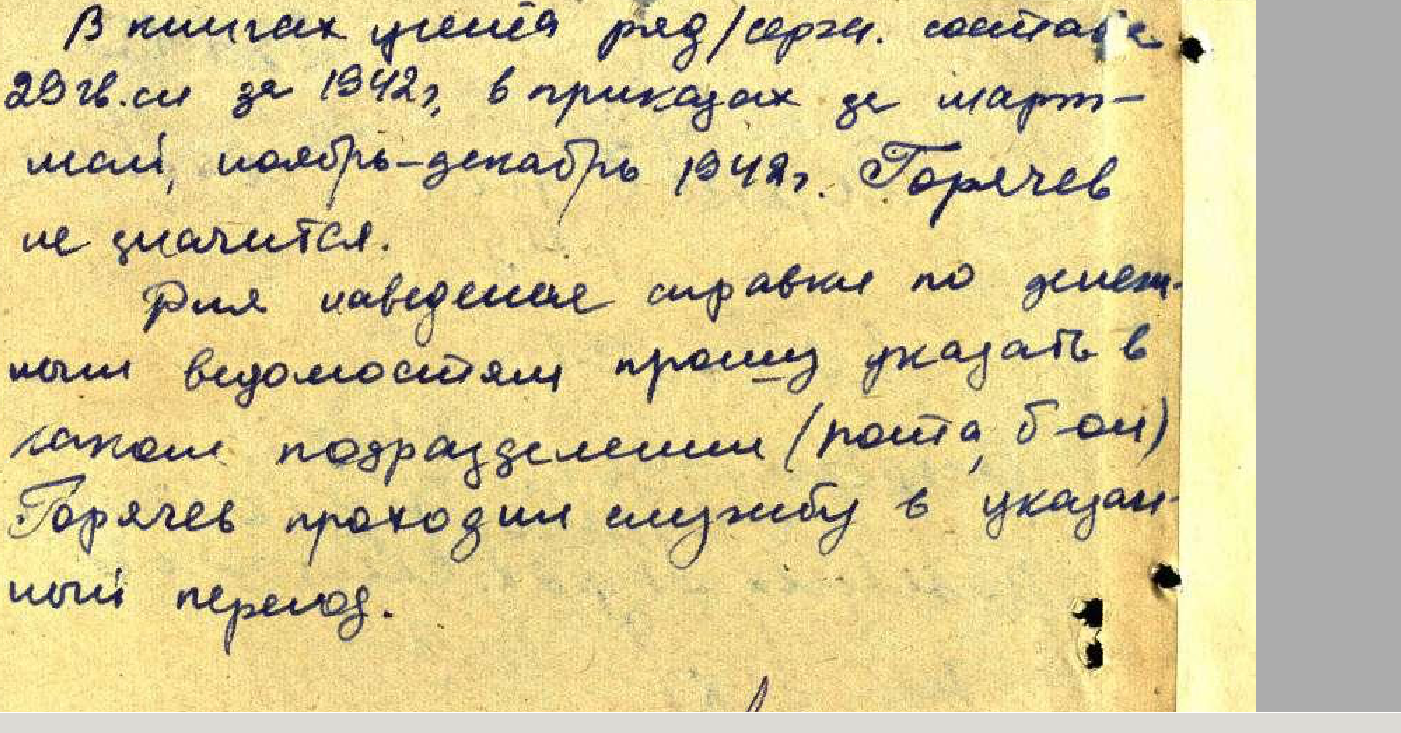 В книгах учета ряд/серж. состава
29 гв. сп за 1942 г, в приказах за март-
май, ноябрь-декабрь 1942 г. Горячев
не значится.
Для наведения справки по денеж-
ным ведомостям прошу указать в
каком подразделении (рота, б-он)
Горячев проходил службу в указан-
ный период.